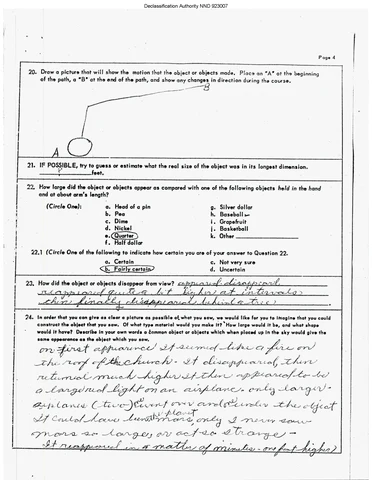 Declassification Authority NND 923007
Page 4
20. Draw a picture that will show the motion that the object or objects made. Place an "A" at the beginning
of the path, a "B" at the end of the path, and show any changes in direction during the course.
B
A
21. IF POSSIBLE, try to guess or estimate what the real size of the object was in its longest dimension.
feet.
22. How large did the object or objects appear as compared with one of the following objects held in the hand
and at about arm's length?
(Circle One):
a. Head of a pin
g. Silver dollar
b. Pea
h. Baseball
c. Dime
i. Grapefruit
d. Nickel
j. Basketball
e. Quarter
k. Other
f. Half dollar
22.1 (Circle One of the following to indicate how certain you are of your answer to Question 22.
a. Certain
c. Not very sure
b. Fairly certain
d. Uncertain
23. How did the object or objects disappear from view? appeared disappeard
reappeared quite a bit higher at intervals
then finally disappeared behind a tree
24. In order that you can give as clear a picture as possible of what you saw, we would like for you to imagine that you could
construct the object that you saw. Of what type material would you make it? How large would it be, and what shape
would it have? Describe in your own words a common object or objects which when placed up in the sky would give the
same appearance as the object which you saw.
on first appearance it seemed like a fire on
the roof of the church. It disappeared, then
returned much higher it then appeared to be
a large red light on an airplane only larger.
airplanes (two) went over and under the object
It could have been planet mars, only I never saw
mars so large, or act so strange.
It reappeared in a matter of minutes - one foot higher)